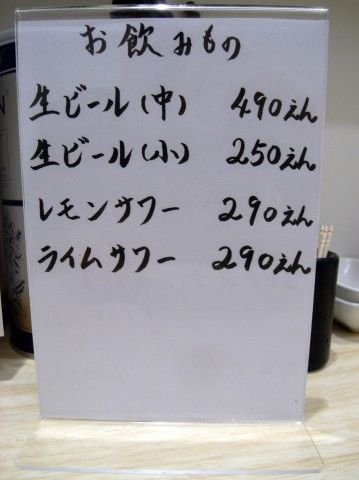 お飲みもの
生ビール(中) 490えん
生ビール(小) 250えん
レモンサワー 290えん
ライムサワー 290えん